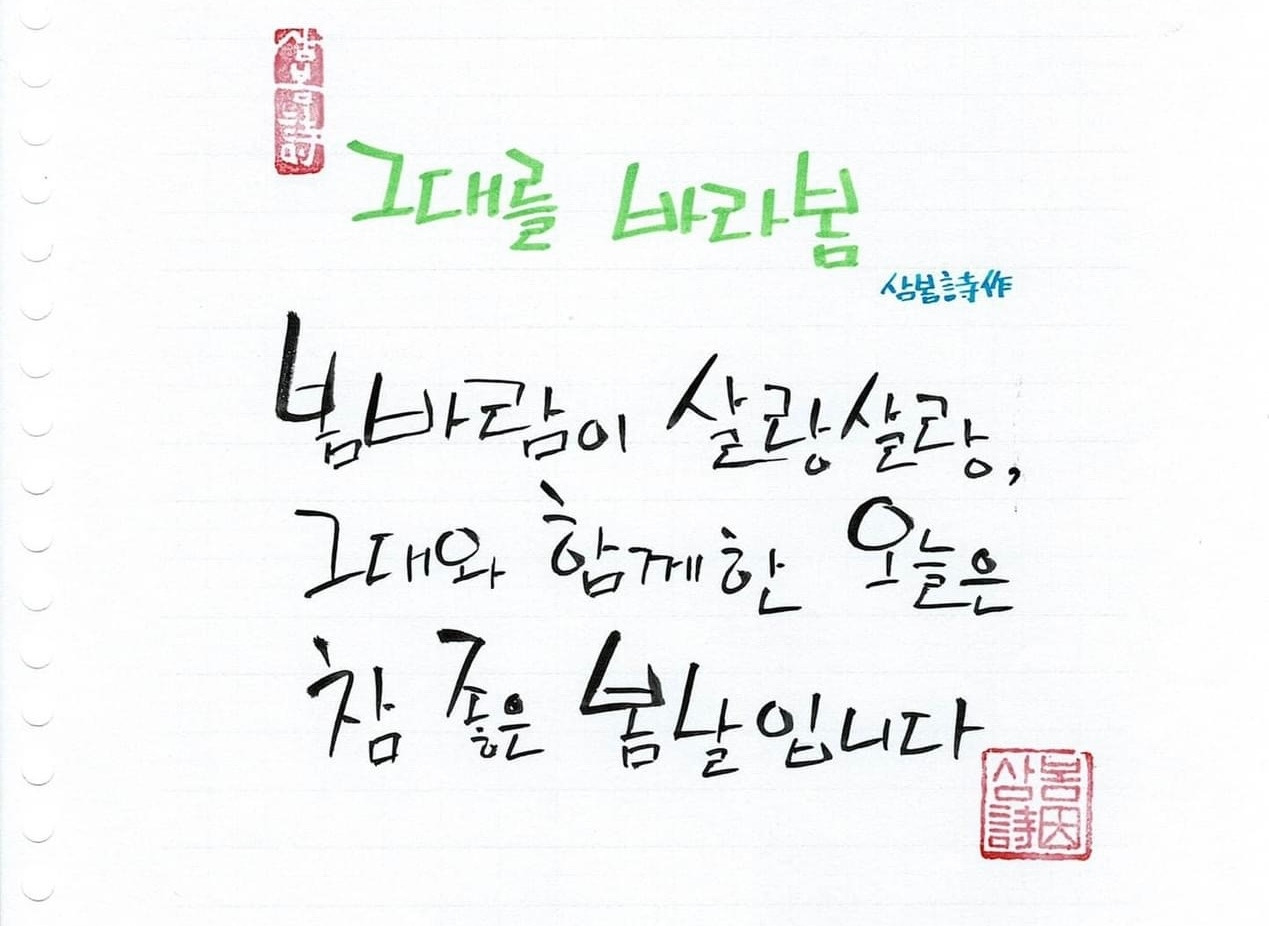 삼봄詩
그대를 바라봄
삼봄詩作
봄바람이 살랑살랑,
그대와 함께한 오늘은
참 좋은 봄날입니다
삼봄
詩因